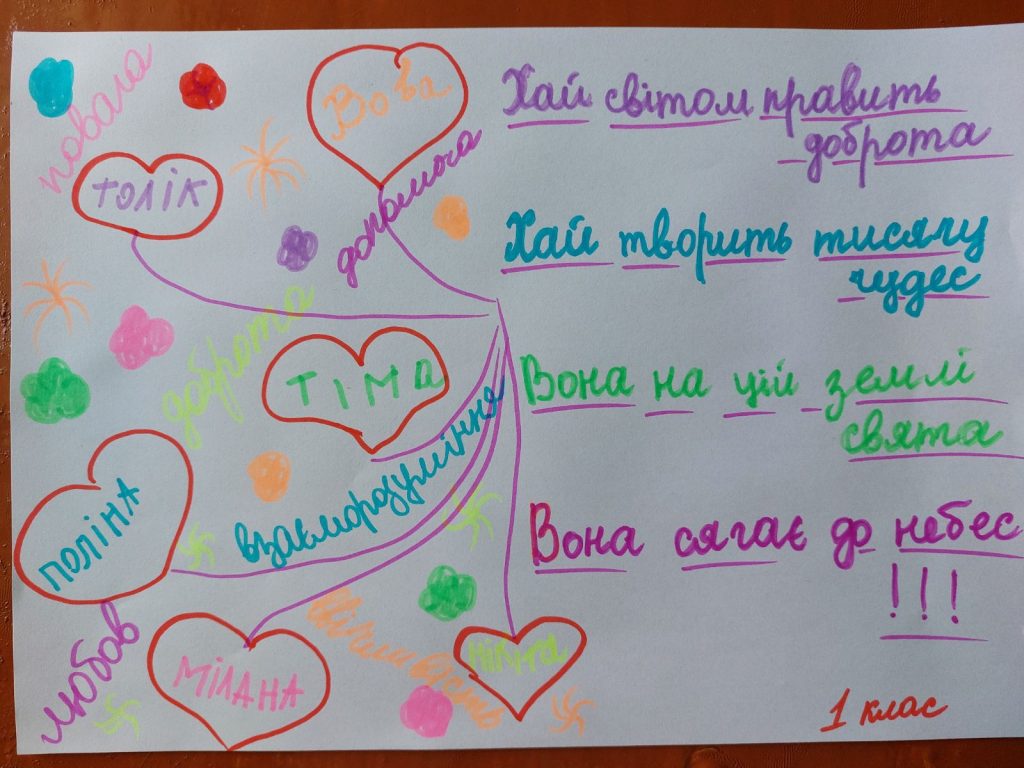 повага
Вова
ТОЛІК
допомога
доброта
ТІМА
взаєморозуміння
ПОЛІНА
любов
МІЛАНА
ввічливість
Хай світом править
доброта
Хай творить тисячу
чудес
Вона на цій землі
свята
Вона сягає до небес
!!!
1 клас